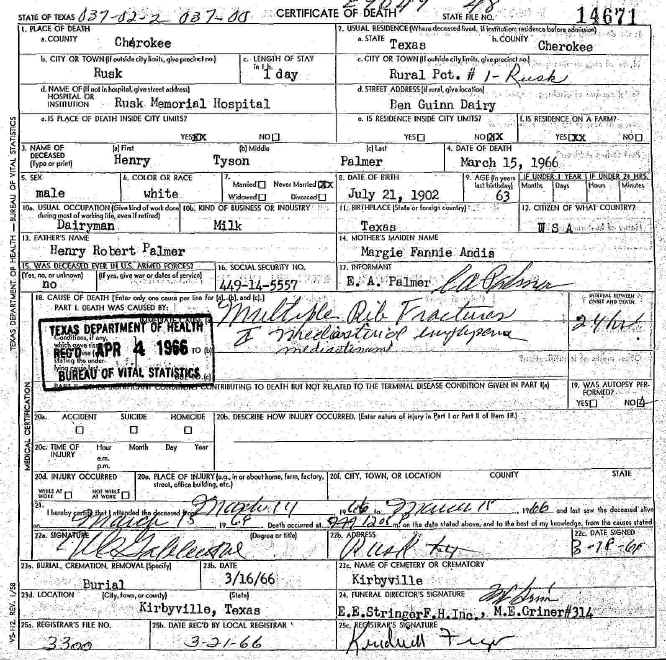 STATE OF TEXAS 037-02-2 037-00 CERTIFICATE OF DEATH STATE FILE NO. 14671
1. PLACE OF DEATH 2. USUAL RESIDENCE (Where deceased lived, if institution: residence before admission)
a. COUNTY Cherokee a. STATE Texas b. COUNTY Cherokee
b. CITY OR TOWN (If outside city limits, give precinct no.) Rusk c. LENGTH OF STAY 1 day c. CITY OR TOWN (If outside city limits, give precinct no.) Rural Pct. # 1-Rusk
d. NAME OF (If not in hospital, give street address) HOSPITAL OR INSTITUTION Rusk Memorial Hospital d. STREET ADDRESS (If rural, give location) Ben Guinn Dairy
e. IS PLACE OF DEATH INSIDE CITY LIMITS? e. IS RESIDENCE INSIDE CITY LIMITS? f. IS RESIDENCE ON A FARM?
YES XX NO YES NO XX YES XX NO
3. NAME OF DECEASED (Type or print) (a) First Henry (b) Middle Tyson (c) Last Palmer 4. DATE OF DEATH March 15, 1966
5. SEX male 6. COLOR OR RACE white 7. Married Never Married XX Widowed Divorced 8. DATE OF BIRTH July 21, 1902 9. AGE (In years last birthday) 63 IF UNDER 1 YEAR Months Days IF UNDER 24 HRS. Hours Minutes
10a. USUAL OCCUPATION (Give kind of work done during most of working life, even if retired) Dairyman 10b. KIND OF BUSINESS OR INDUSTRY Milk 11. BIRTHPLACE (State or foreign country) Texas 12. CITIZEN OF WHAT COUNTRY? USA
13. FATHER'S NAME Henry Robert Palmer 14. MOTHER'S MAIDEN NAME Margie Fannie Andis
15. WAS DECEASED EVER IN U.S. ARMED FORCES? (Yes, no, or unknown) (If yes, give war or dates of service) no 16. SOCIAL SECURITY NO. 449-14-5557 17. INFORMANT E. A. Palmer E A Palmer
18. CAUSE OF DEATH [Enter only one cause per line for (a), (b), and (c).] INTERVAL BETWEEN ONSET AND DEATH
PART I. DEATH WAS CAUSED BY: Multiple Rib Fractures 24 hrs.
TEXAS DEPARTMENT OF HEALTH
REC'D APR 4 1966
BUREAU OF VITAL STATISTICS
CONTRIBUTING TO DEATH BUT NOT RELATED TO THE TERMINAL DISEASE CONDITION GIVEN IN PART I(a) 19. WAS AUTOPSY PERFORMED? YES NO
20a. ACCIDENT SUICIDE HOMICIDE 20b. DESCRIBE HOW INJURY OCCURRED. (Enter nature of injury in Part I or Part II of item 18.)
20c. TIME OF INJURY Hour a.m. p.m. Month Day Year
20d. INJURY OCCURRED WHILE AT WORK NOT WHILE AT WORK 20e. PLACE OF INJURY (e.g., in or about home, farm, factory, street, office building, etc.) 20f. CITY, TOWN, OR LOCATION COUNTY STATE
21. I hereby certify that I attended the deceased from March 14 1966 to March 1966 and last saw the deceased alive
on March 15 Death occurred at m. on the date stated above, and to the best of my knowledge, from the causes stated
22a. SIGNATURE (Degree or title) 22b. ADDRESS Rusk 22c. DATE SIGNED 3-18-66
23a. BURIAL, CREMATION, REMOVAL (Specify) Burial 23b. DATE 3/16/66 23c. NAME OF CEMETERY OR CREMATORY Kirbyville
23d. LOCATION (City, town, or county) (State) Kirbyville, Texas 24. FUNERAL DIRECTOR'S SIGNATURE E.E.Stringer F.H.Inc., M.E.Criner#314
25a. REGISTRAR'S FILE NO. 3300 25b. DATE REC'D BY LOCAL REGISTRAR 3-21-66 25c. REGISTRAR'S SIGNATURE
TEXAS DEPARTMENT OF HEALTH — BUREAU OF VITAL STATISTICS
MEDICAL CERTIFICATION
VS-112 REV. 1/58